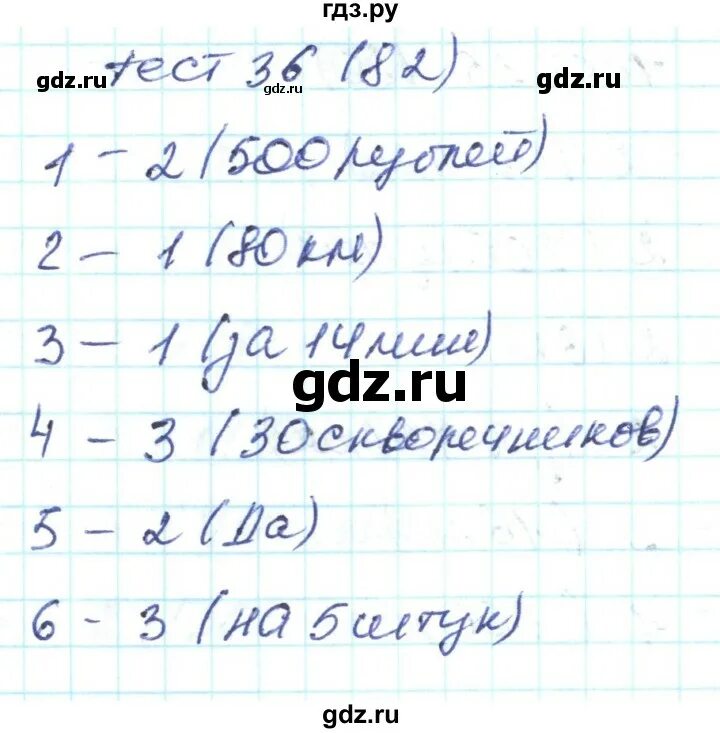 гдз.ру
gdz.ru тест 36 (82) gdz.ru
gdz.ru
1 - 2 (500 рублей)
2 - 1 (80 км)
3 - 1 (за 14 мин)
gdz.ru
4 - 3 (30 скворечников)
5 - 2 (Да)
6 - 3 (на 5 штук)
gdz.ru